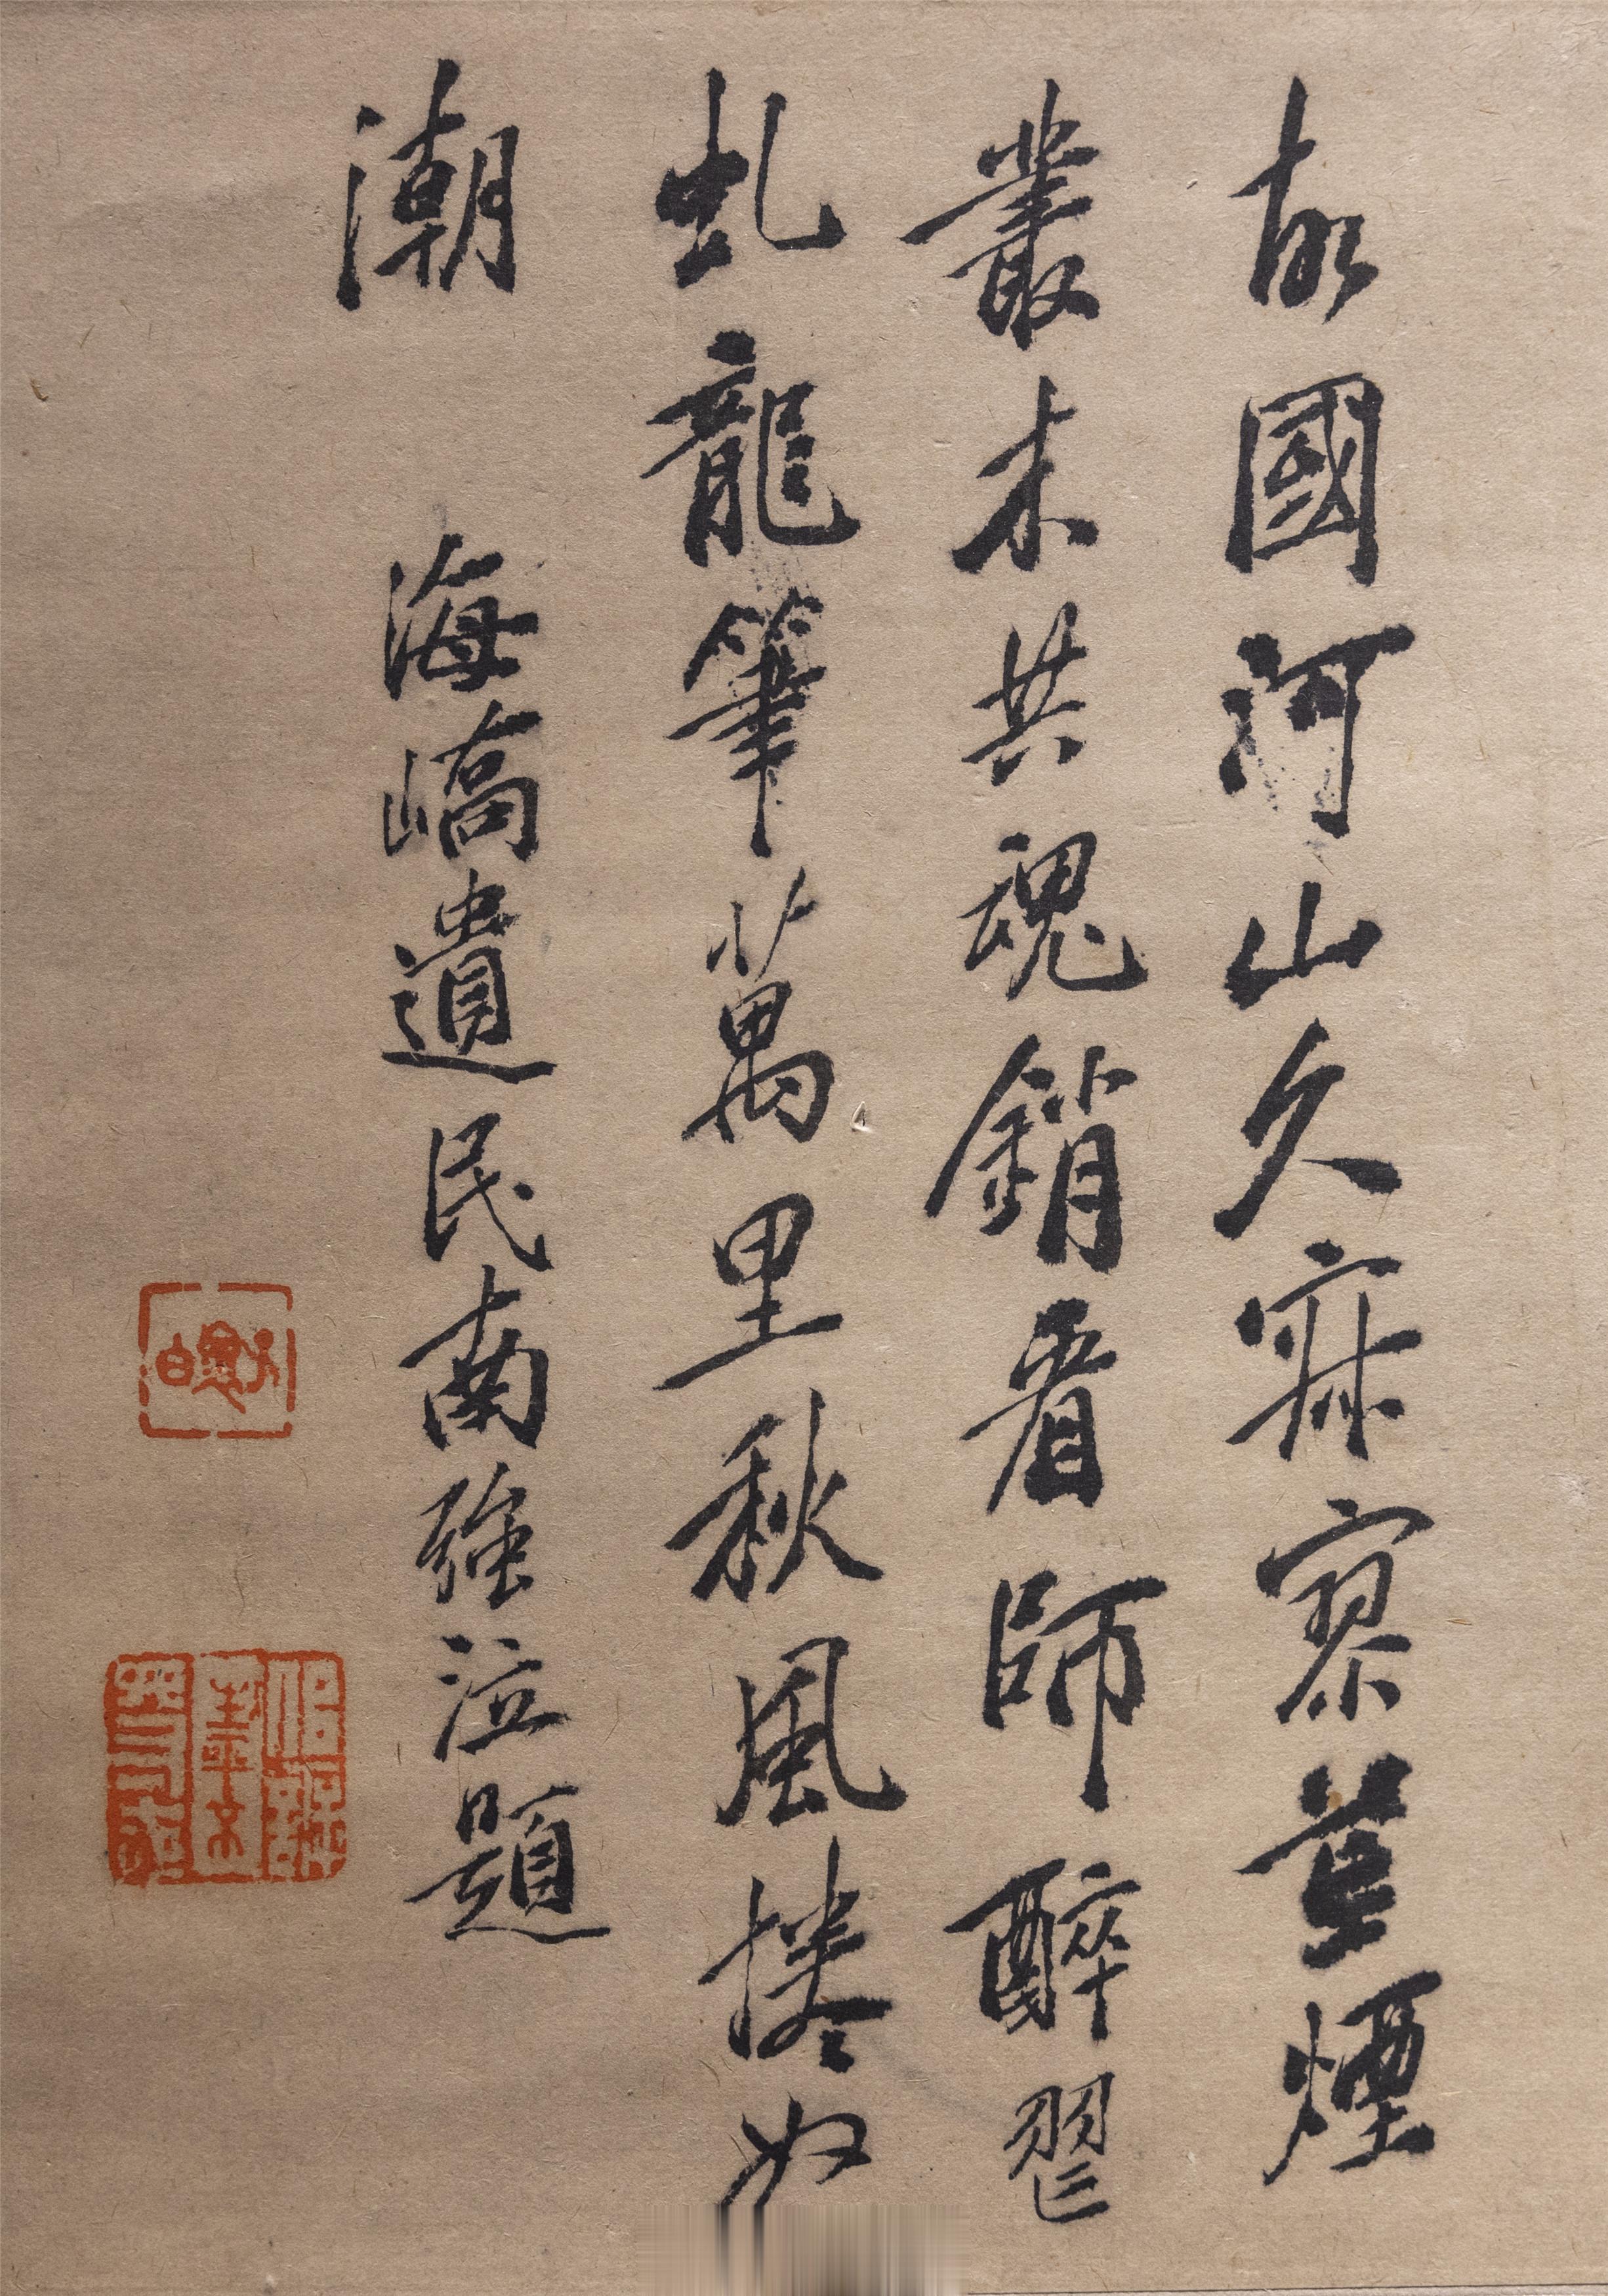 故國河山久寂寥董煙
叢未共魂銷看師醉習
虬龍筆萬里秋風捲怒
潮
海嶠遺民南強泣題